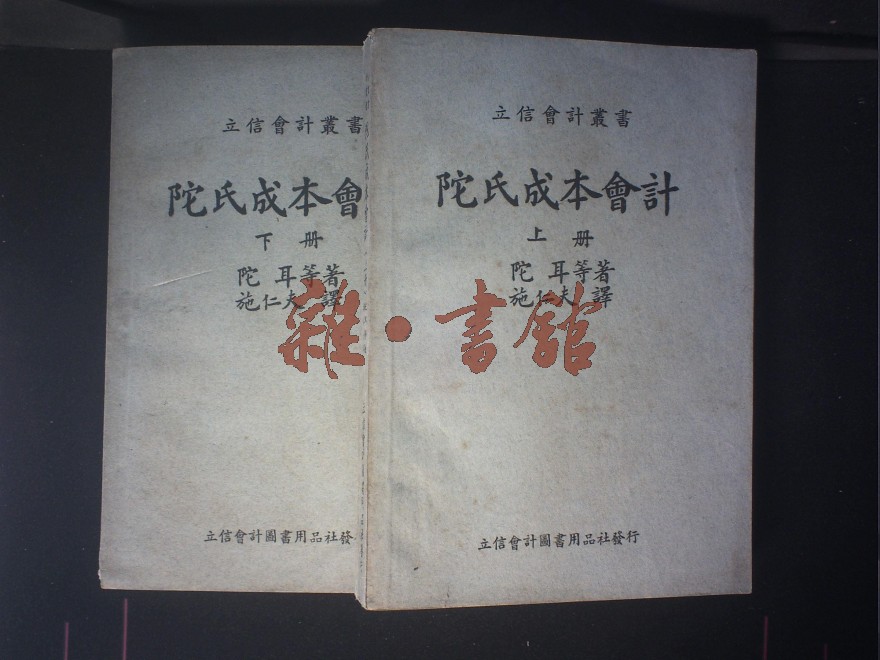 立信會計叢書
陀氏成本會
下册
陀耳等著
施仁夫譯
立信會計圖書用品社發
立信會計叢書
陀氏成本會計
上册
陀耳等著
施仁夫譯
立信會計圖書用品社發行
雜·書館